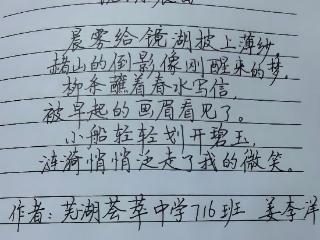 晨雾给镜湖披上薄纱，
赭山的倒影像刚醒来的梦，
柳条蘸着春水写信，
被早起的画眉看见了。
小船轻轻划开碧玉，
涟漪悄悄泛走了我的微笑。
作者：芜湖荟萃中学716班 姜李洋